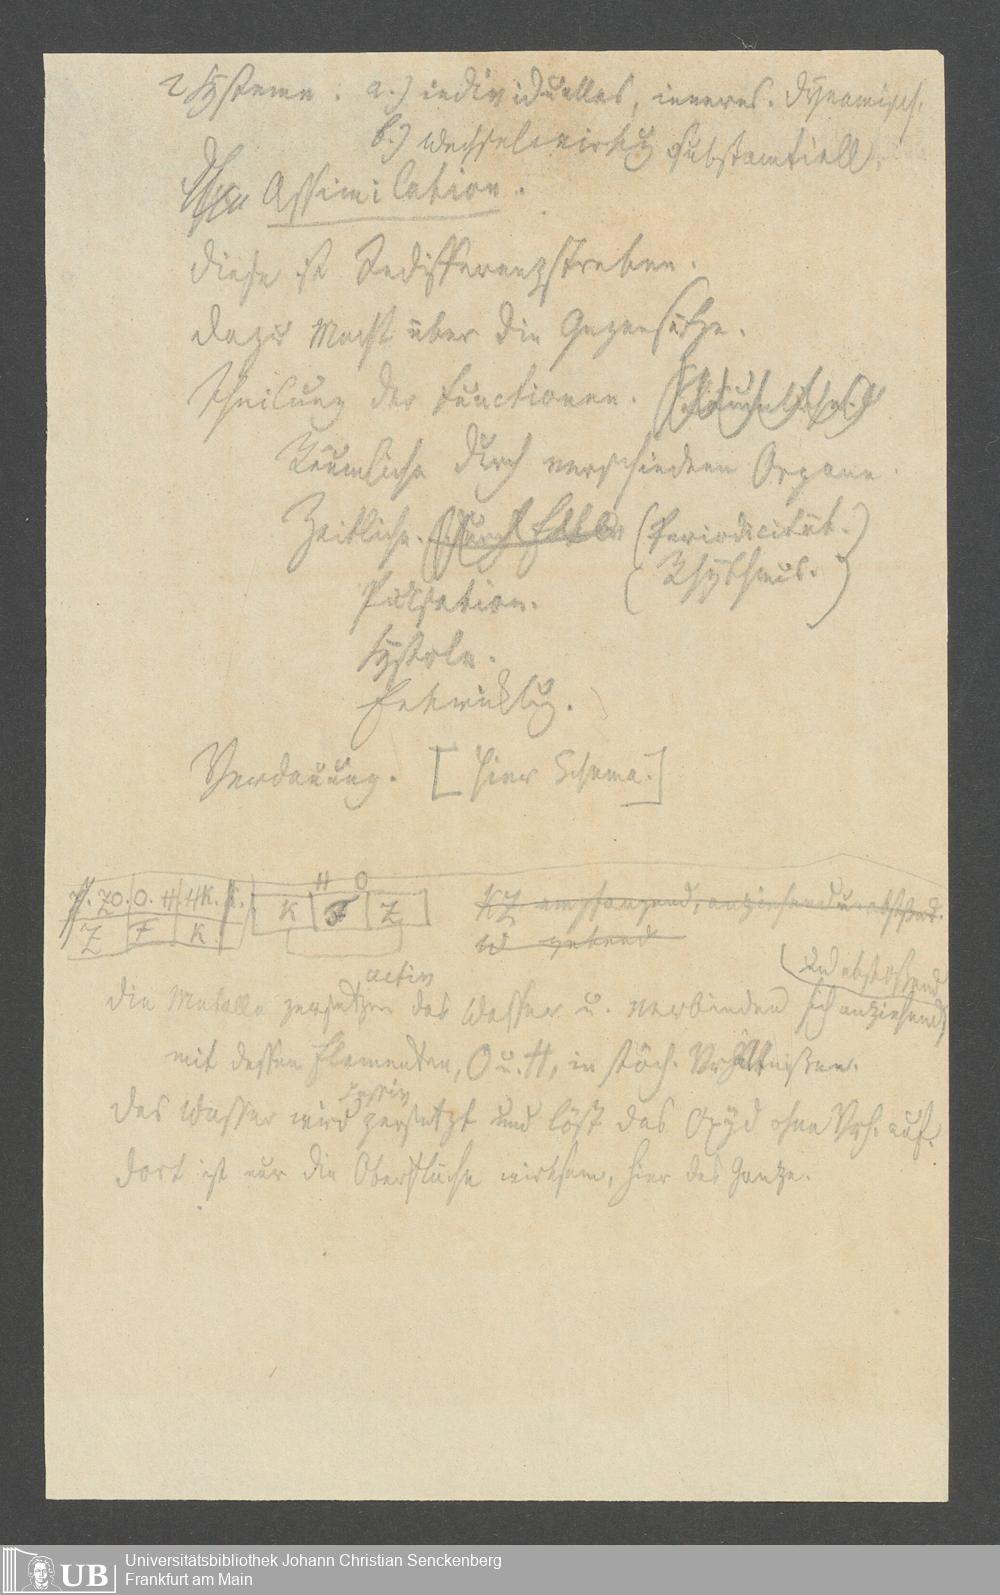 2 Systeme: a.) individuelles, inneres. Dynamisch.
b.) Wechselwirkg substantiell.
Assimilation.
Diese ist Indifferenzstreben.
dazu Macht über die Gegensätze.
Theilung der Functionen.
Räumliche durch verschiedene Organe.
Zeitliche. durch (Periodicität.)
(Rhythmus.)
Pulsation.
Systole.
Entwicklg.
Verdauung. [hier Schema.]
H O
Z O. O. H. HK.
Z F K
K F Z
KZ empfangend, anziehend u. abstoßend.
gebend
(und abstoßend
activ
die Metalle zersetzen das Wasser u. verbinden sich anziehend)
mit dessen Elementen, O u. H, in stöch. Verhältnißen.
passiv
das Wasser wird zersetzt und löst das Oxyd ohne Verh. auf.
dort ist nur die Oberfläche wirksam, hier das Ganze.
UB
Universitätsbibliothek Johann Christian Senckenberg
Frankfurt am Main